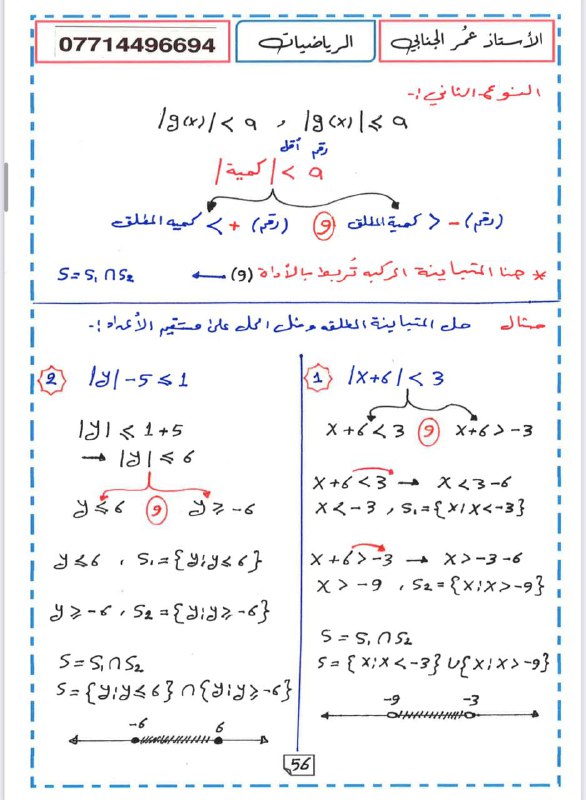 الأستاذ عُمر الجنابي
الرياضيات
07714496694
النوع الثاني :-
|g(x)| < a , |g(x)| ≤ a
رقم أقل
|كمية| < a
كمية المطلق > -(رقم) و كميه المطلق < +(رقم)
* هنا المتباينة المركبه تُربط بالأداة (و) ← S = S₁ ∩ S₂
مثال حل المتباينة المطلقه ومثل الحل على مستقيم الأعداد :-
1 |x+6| < 3
x+6 < 3 و x+6 > -3
x+6 < 3 → x < 3-6
x < -3 , S₁ = {x:x < -3}
x+6 > -3 → x > -3-6
x > -9 , S₂ = {x:x > -9}
S = S₁ ∩ S₂
S = {x:x < -3} ∪ {x:x > -9}
-9 -3
2 |y| -5 ≤ 1
|y| ≤ 1+5
→ |y| ≤ 6
y ≤ 6 و y ≥ -6
y ≤ 6 , S₁ = {y:y ≤ 6}
y ≥ -6 , S₂ = {y:y ≥ -6}
S = S₁ ∩ S₂
S = {y:y ≤ 6} ∩ {y:y ≥ -6}
-6 6
56